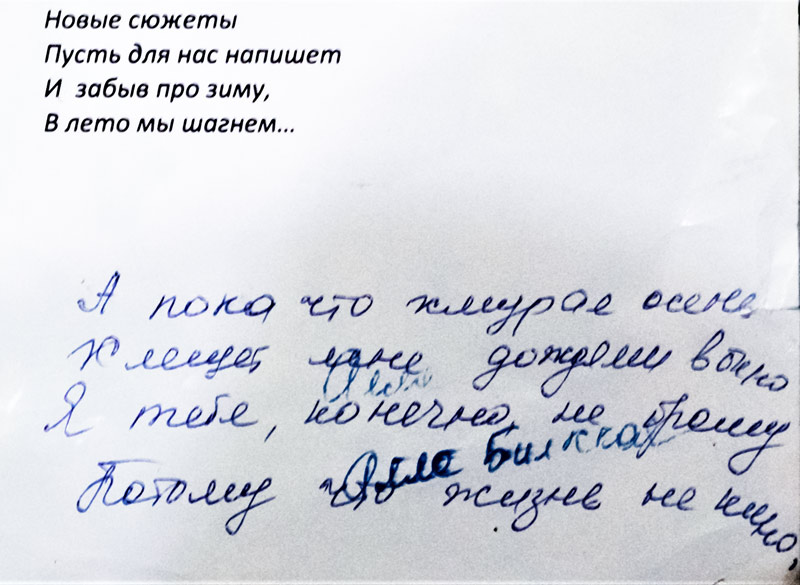 Новые сюжеты
Пусть для нас напишет
И забыв про зиму,
В лето мы шагнем...
А пока что хмурая осень
Хлещет мне дождями в окно
Я тебя, конечно, не брошу
Потому что жизнь не кино,